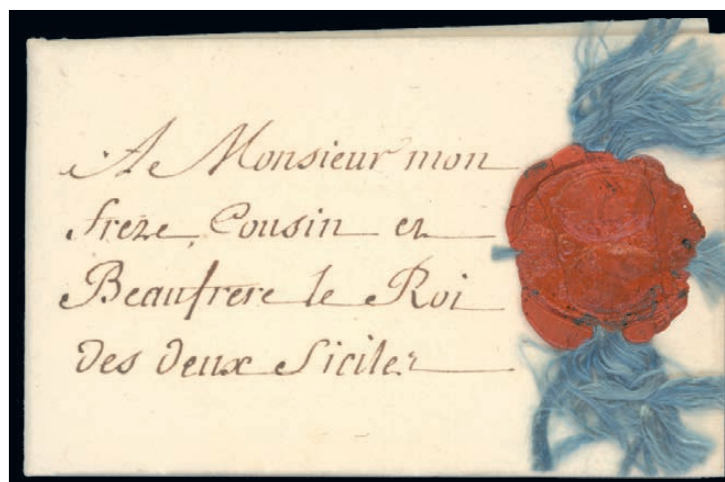 A Monsieur mon
frere, Cousin et
Beaufrere le Roi
des deux Siciles